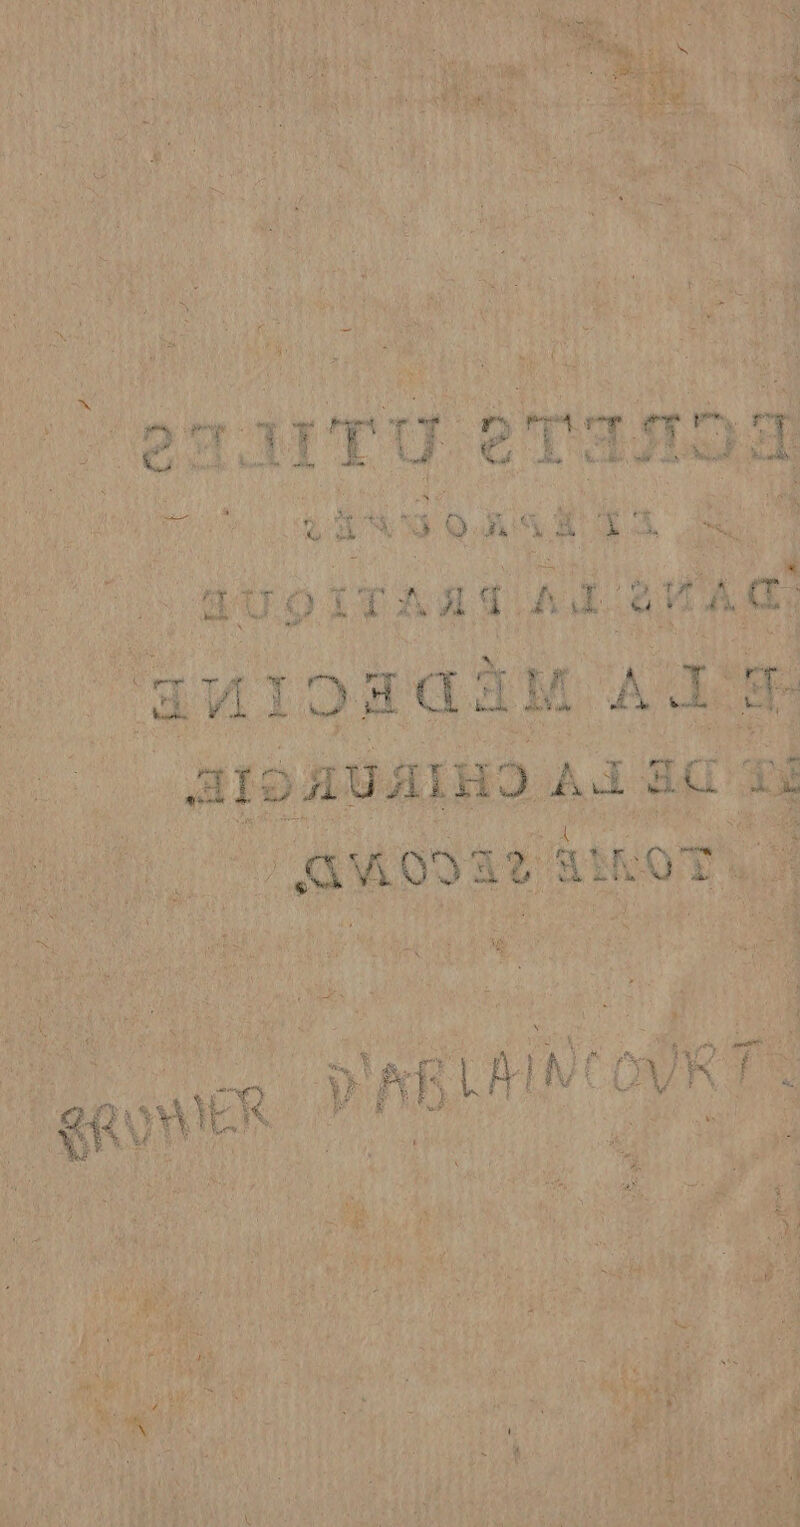 ECRETS UTILES
ET ÉPROUVÉS
DANS LA PRATIQUE
E LA MÉDECINE
ET DE LA CHIRURGIE,
TOME SECOND,
D'ABLAINCOVRT